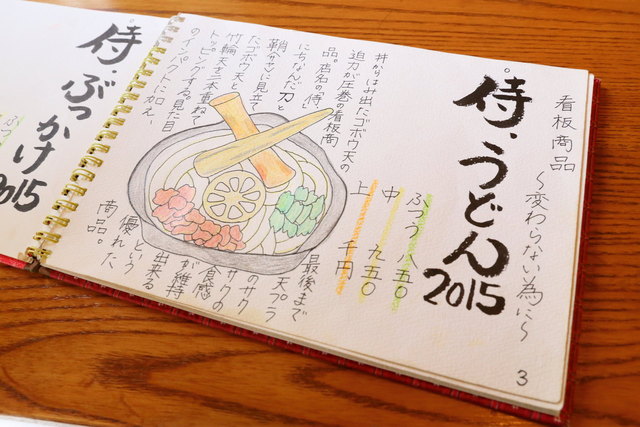 看板商品
~変わらない為に~
侍・うどん
2015
ふつう 八五〇
中 九五〇
上 千円
丼からはみ出たゴボウ天の
迫力が圧巻の看板商
品。店名の「侍」
にちなんだ刀と
鞘をイ
たゴボウ天と
竹輪天を二本重ねて
トッピングする。見た目
のインパクトに加え、
最後まで
天プラ
のサク
サクの
食感
が維持
出来る
という
優れた
商品。
3
侍・ぶっかけ
2015
ふつう